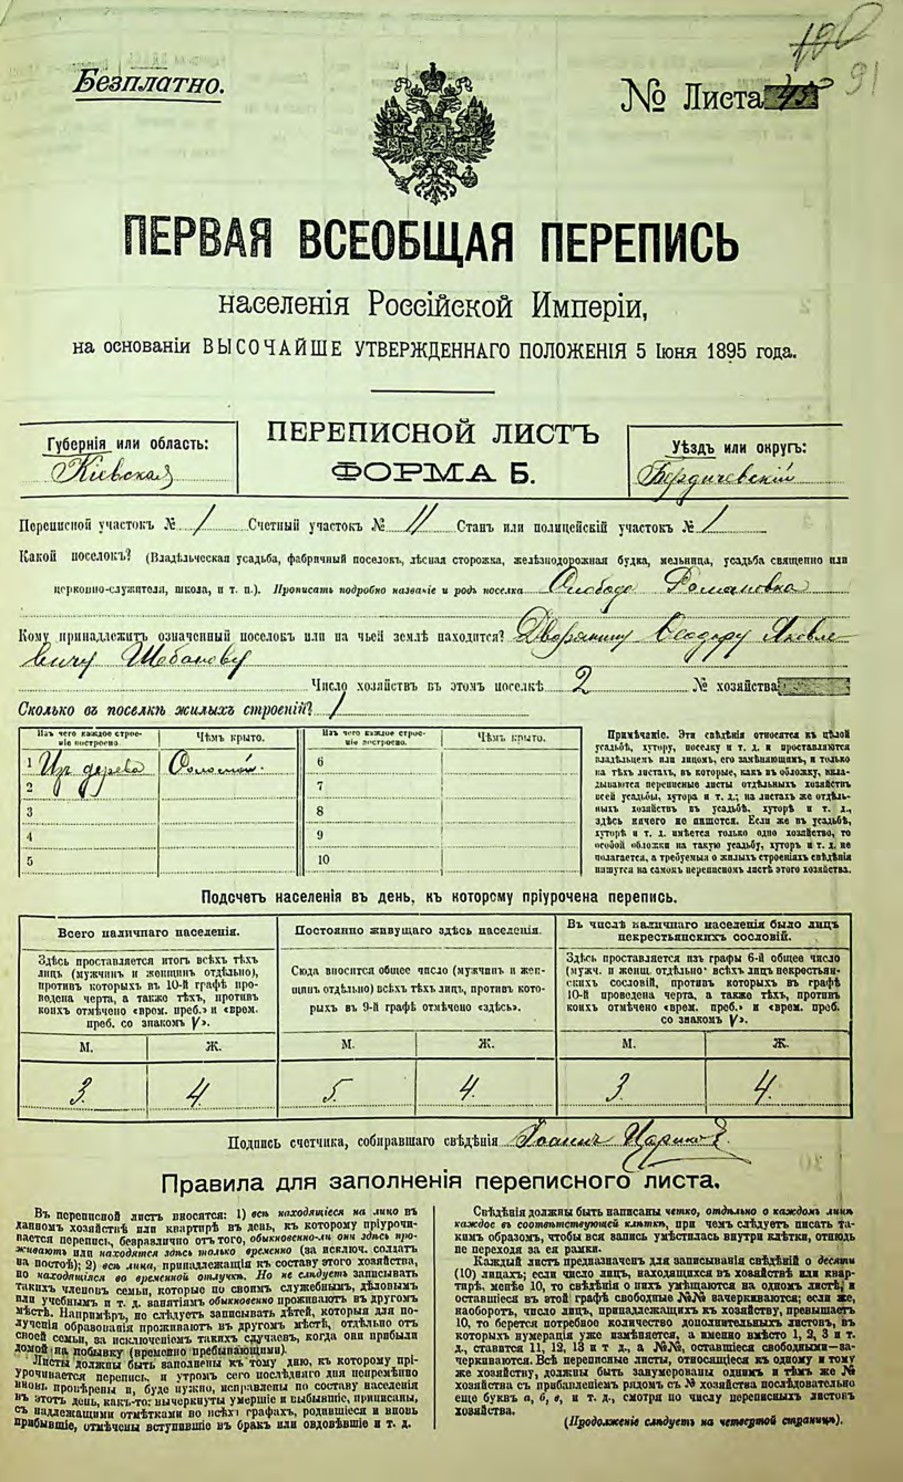 100
91
Безплатно.
№ Листа 45
ПЕРВАЯ ВСЕОБЩАЯ ПЕРЕПИСЬ
населенія Россійской Имперіи,
на основаніи ВЫСОЧАЙШЕ УТВЕРЖДЕННАГО ПОЛОЖЕНІЯ 5 Іюня 1895 года.
Губернія или область:
Кіевская
ПЕРЕПИСНОЙ ЛИСТЪ
ФОРМА Б.
Уѣздъ или округъ:
Бердичевскій
Переписной участокъ № 1 Счетный участокъ № 11 Станъ или полицейскій участокъ № 1
Какой поселокъ? (Владѣльческая усадьба, фабричный поселокъ, лѣсная сторожка, желѣзнодорожная будка, мельница, усадьба священно или
церковно-служителя, школа, и т. п.). Прописать подробно названіе и родъ поселка Слобода Романовка
Кому принадлежитъ означенный поселокъ или на чьей землѣ находится? Дворянину Ѳеодору Яковле
вичу Шебанову
Число хозяйствъ въ этомъ поселкѣ 2 № хозяйства
Сколько въ поселкѣ жилыхъ строеній? 1
Изъ чего каждое строе-
ніе построено.
Чѣмъ крыто.
Изъ чего каждое строе-
ніе построено.
Чѣмъ крыто.
1 Изъ дерева Соломой. 6
2 7
3 8
4 9
5 10
Примѣчаніе. Эти свѣдѣнія относятся къ цѣлой
усадьбѣ, хутору, поселку и т. д. и проставляются
владѣльцемъ или лицомъ, его замѣняющимъ, и только
на тѣхъ листахъ, въ которые, какъ въ обложку, вкла-
дываются переписные листы отдѣльныхъ хозяйствъ
всей усадьбы, хутора и т. д.; на листахъ же отдѣль-
ныхъ хозяйствъ въ усадьбѣ, хуторѣ и т. д.,
здѣсь ничего не пишется. Если же въ усадьбѣ,
хуторѣ и т. д. имѣется только одно хозяйство, то
особой обложки на такую усадьбу, хуторъ и т. д. не
полагается, а требуемыя о жилыхъ строеніяхъ свѣдѣнія
пишутся на самомъ переписномъ листѣ этого хозяйства.
Подсчетъ населенія въ день, къ которому пріурочена перепись.
Всего наличнаго населенія.
Здѣсь проставляется итогъ всѣхъ тѣхъ
лицъ (мужчинъ и женщинъ отдѣльно),
противъ которыхъ въ 10-й графѣ про-
ведена черта, а также тѣхъ, противъ
коихъ отмѣчено «врем. преб.» и «врем.
преб. со знакомъ V».
М. Ж.
3. 4.
Постоянно живущаго здѣсь населенія.
Сюда вносится общее число (мужчинъ и жен-
щинъ отдѣльно) всѣхъ тѣхъ лицъ, противъ кото-
рыхъ въ 9-й графѣ отмѣчено «здѣсь».
М. Ж.
5. 4.
Въ числѣ наличнаго населенія было лицъ
некрестьянскихъ сословій.
Здѣсь проставляется изъ графы 6-й общее число
(мужч. и женщ. отдѣльно) всѣхъ лицъ некрестьян-
скихъ сословій, противъ которыхъ въ графѣ
10-й проведена черта, а также тѣхъ, противъ
коихъ отмѣчено «врем. преб.» и «врем. преб.
со знакомъ V».
М. Ж.
3. 4.
Подпись счетчика, собиравшаго свѣдѣнія Іоаннъ
Правила для заполненія переписного листа.
Въ переписной листъ вносятся: 1) всѣ находящіеся на лицо въ
данномъ хозяйствѣ или квартирѣ въ день, къ которому пріурочи-
вается перепись, безразлично отъ того, обыкновенно-ли они здѣсь про-
живаютъ или находятся здѣсь только временно (за исключ. солдатъ
на постоѣ); 2) всѣ лица, принадлежащія къ составу этого хозяйства,
но находящіяся во временной отлучкѣ. Но не слѣдуетъ записывать
такихъ членовъ семьи, которые по своимъ служебнымъ, дѣловымъ
или учебнымъ и т. д. занятіямъ обыкновенно проживаютъ въ другомъ
мѣстѣ. Напримѣръ, не слѣдуетъ записывать дѣтей, которыя для по-
лученія образованія проживаютъ въ другомъ мѣстѣ, отдѣльно отъ
своей семьи, за исключеніемъ такихъ случаевъ, когда они прибыли
домой на побывку (временно пребывающими).
Листы должны быть заполнены къ тому дню, къ которому прі-
урочивается перепись, и утромъ сего послѣдняго дня непремѣнно
вновь провѣрены и, буде нужно, исправлены по составу населенія
въ этотъ день, какъ-то: вычеркнуты умершіе и выбывшіе, приписаны,
съ надлежащими отмѣтками во всѣхъ графахъ, родившіеся и вновь
прибывшіе, отмѣчены вступившіе въ бракъ или овдовѣвшіе и т. д.
Свѣдѣнія должны быть написаны четко, отдѣльно о каждомъ лицѣ,
каждое въ соотвѣтствующей клѣткѣ, при чемъ слѣдуетъ писать та-
кимъ образомъ, чтобы вся запись умѣстилась внутри клѣтки, отнюдь
не переходя за ея рамки.
Каждый листъ предназначенъ для записыванія свѣдѣній о десяти
(10) лицахъ; если число лицъ, находящихся въ хозяйствѣ или квар-
тирѣ, менѣе 10, то свѣдѣнія о нихъ умѣщаются на одномъ листѣ, и
оставшіеся въ этой графѣ свободные №№ зачеркиваются; если же,
наоборотъ, число лицъ, принадлежащихъ къ хозяйству, превышаетъ
10, то берется потребное количество дополнительныхъ листовъ, въ
которыхъ нумерація уже измѣняется, а именно вмѣсто 1, 2, 3 и т.
д., ставится 11, 12, 13 и т. д., а №№, оставшіеся свободными—за-
черкиваются. Всѣ переписные листы, относящіеся къ одному и тому
же хозяйству, должны быть занумерованы однимъ и тѣмъ же №
хозяйства съ прибавленіемъ рядомъ съ № хозяйства послѣдовательно
еще буквъ а, б, в, и т. д., смотря по числу переписныхъ листовъ
хозяйства.
(Продолженіе слѣдуетъ на четвертой страницѣ).